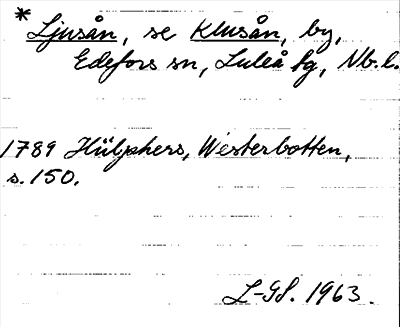 * Ljusån, se Klusån, by,
Edefors sn, Luleå fg, Nb.l.
1789 Hülphers, Westerbotten,
s. 150.
L-GS. 1963.